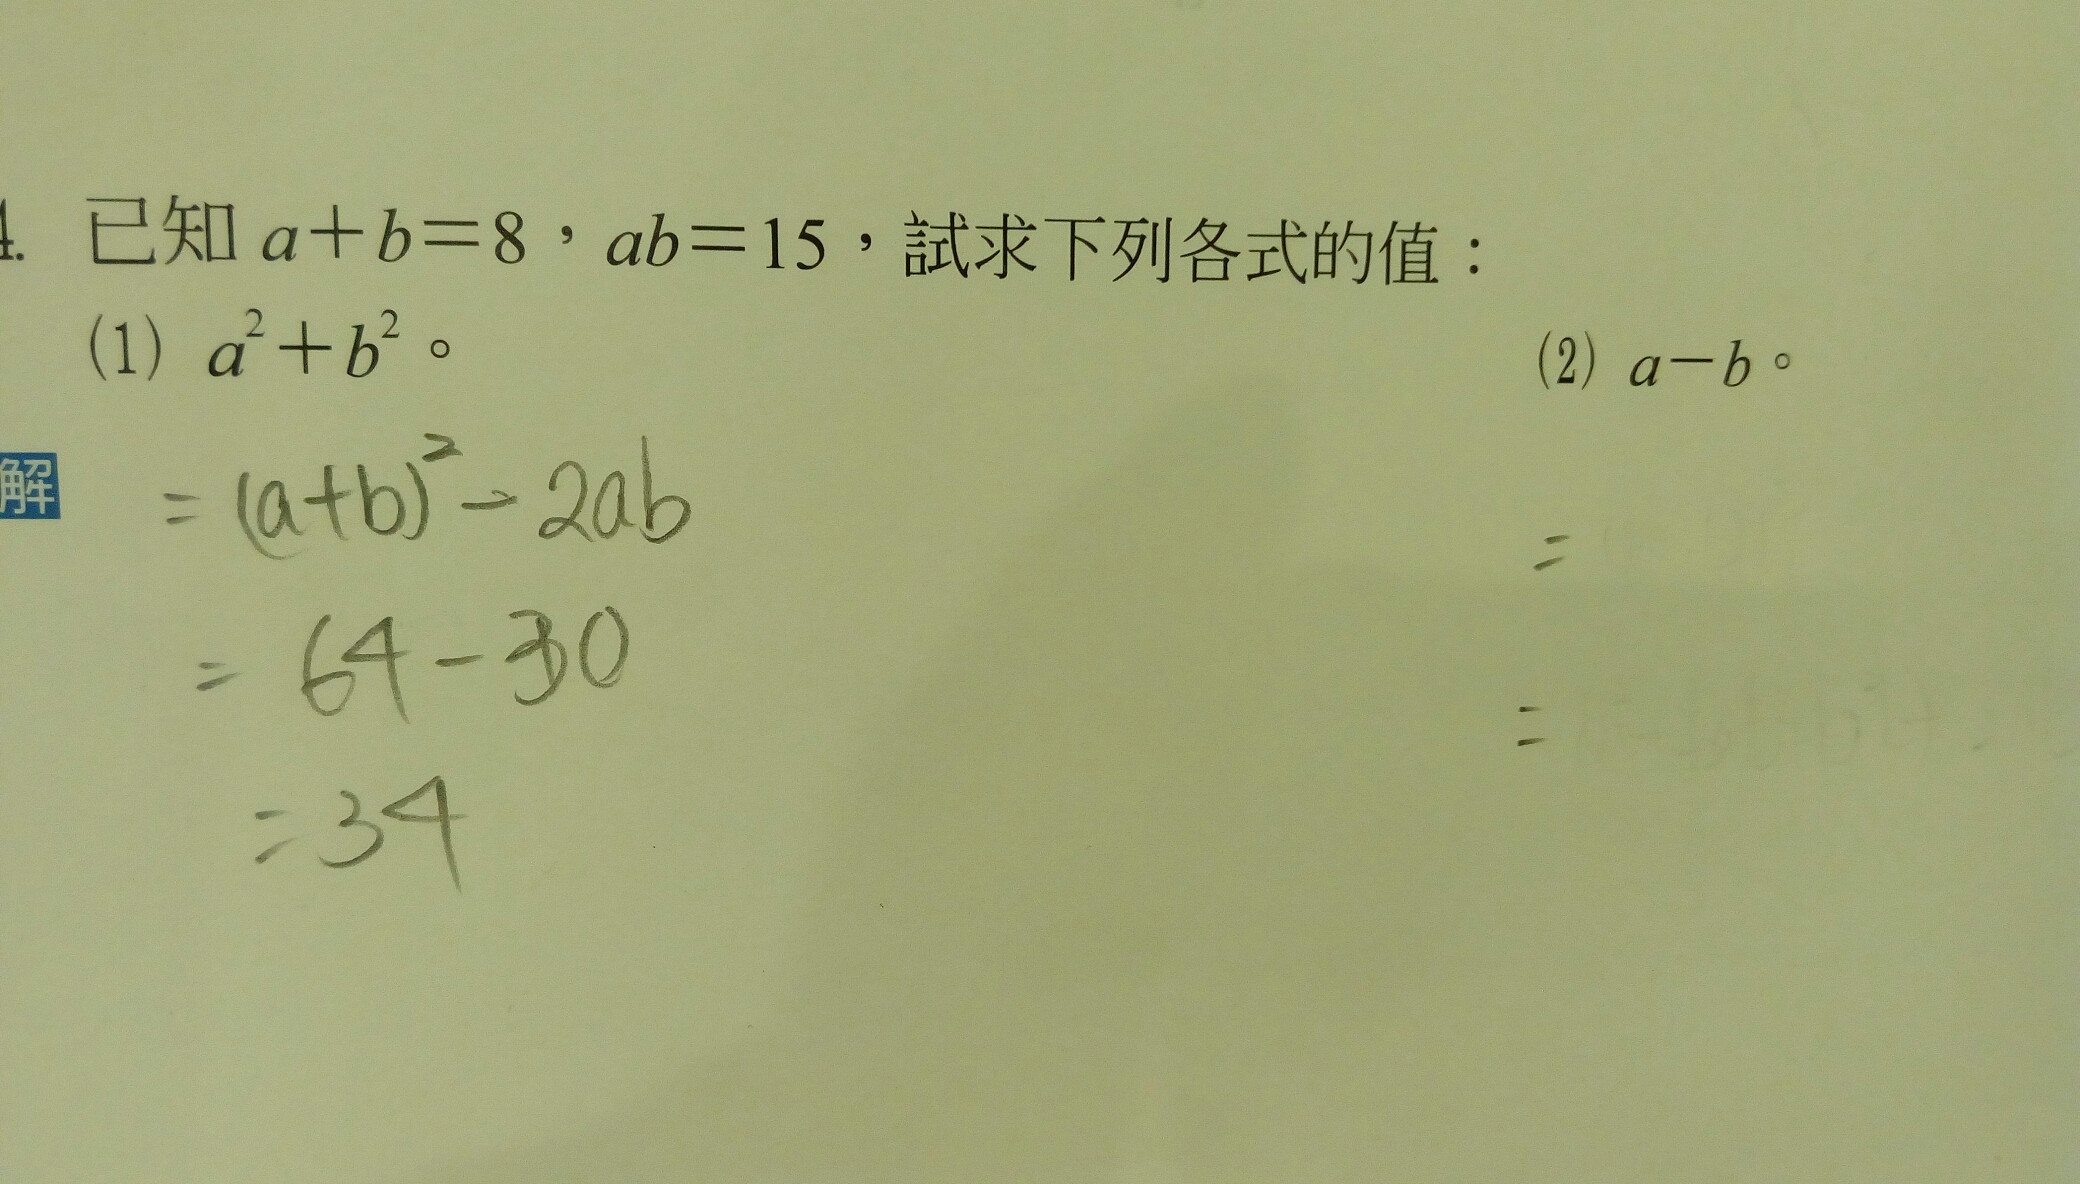 4. 已知 a+b=8，ab=15，試求下列各式的值：
(1) a²+b²。
(2) a−b。
解
= (a+b)² − 2ab
= 64 − 30
= 34
=
=